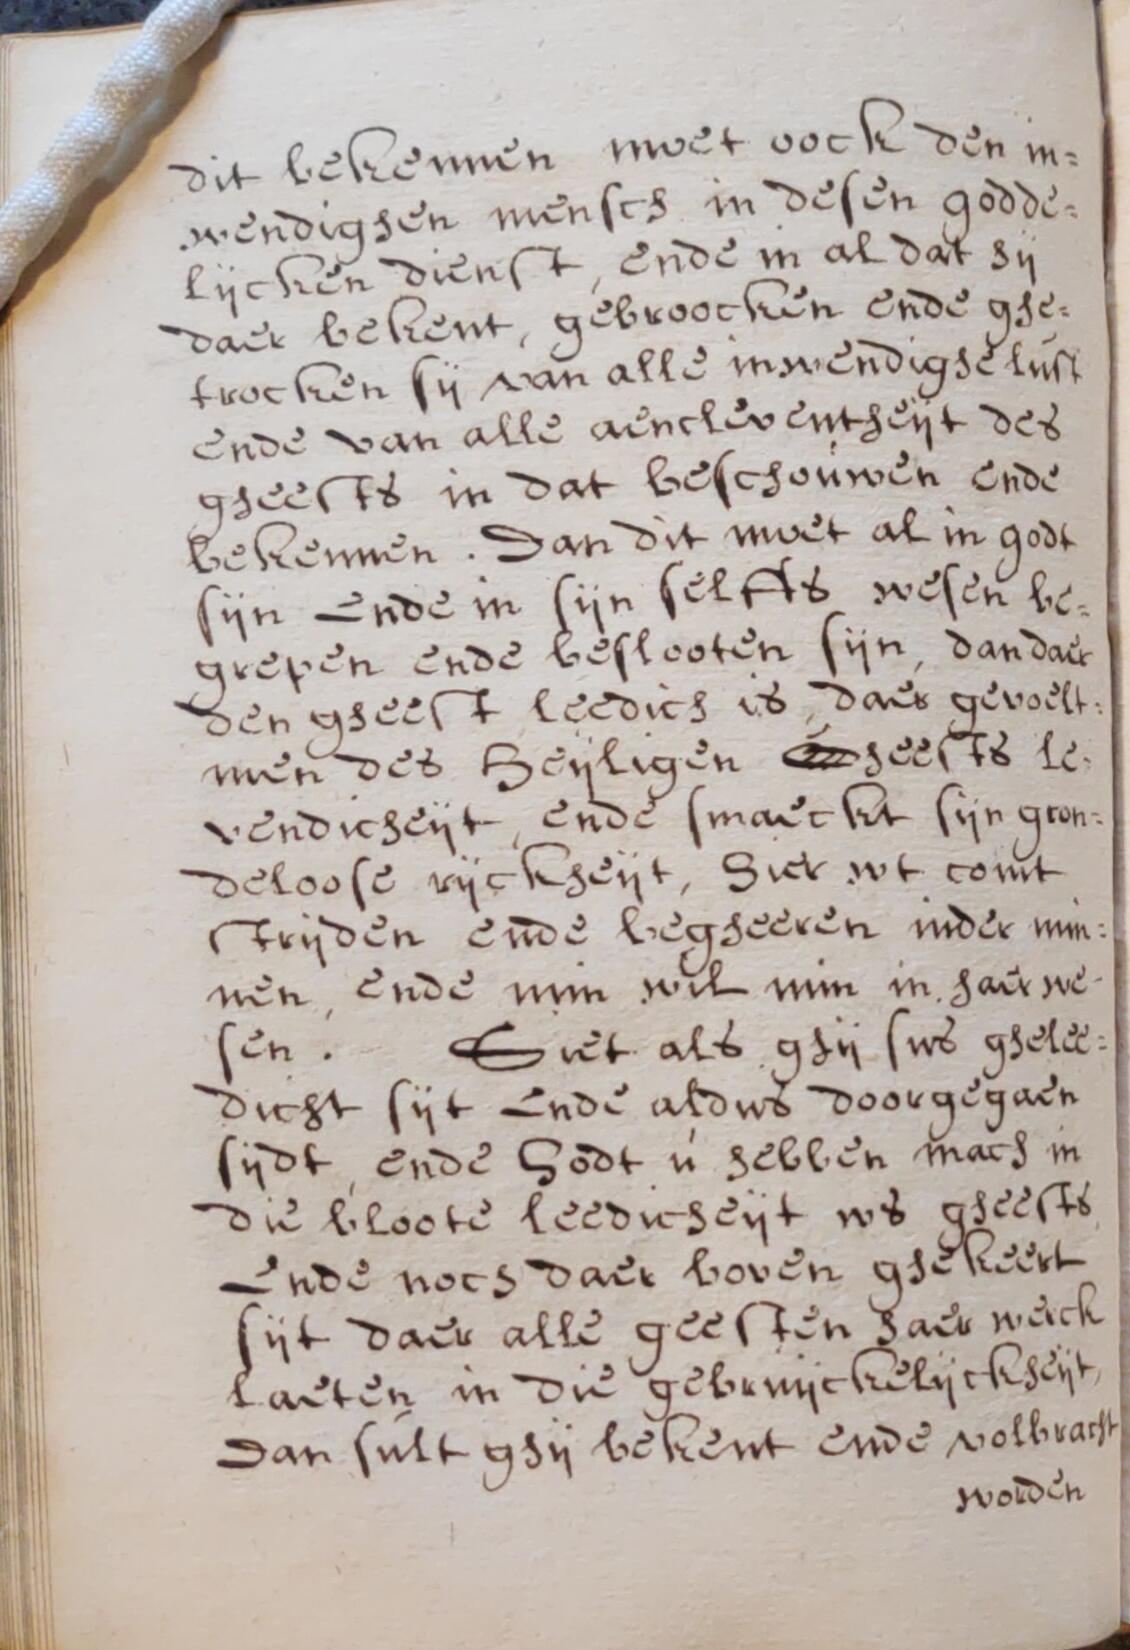 dit bekennen moet oock den in=
wendighen mensch in desen godde=
lijcken dienst, ende in al dat hij
daer bekent, gebroocken ende ghe=
trocken sij van alle inwendighe lust
ende van alle aencleventheijt des
gheests in dat beschouwen ende
bekennen. Dan dit moet al in godt
sijn Ende in sijn selffs wesen be=
grepen ende beslooten sijn, dan daer
den gheest leedich is, daer gevoelt=
men des Heijligen Gheests le=
vendicheijt, ende smaeckt sijn gron=
deloose rijckheijt, Hier wt comt
strijden ende begheeren inder min=
nen, ende min wil min in haer we=
sen. Siet als ghij sus ghelee=
dicht sijt Ende aldus doorgegaen
sijdt, ende Godt u hebben mach in
die bloote leedicheijt ws gheests
Ende noch daer boven ghekeert
sijt daer alle geesten haer werck
laeten in die gebruijckelijckheijt,
Dan sult ghij bekent ende volbracht
worden